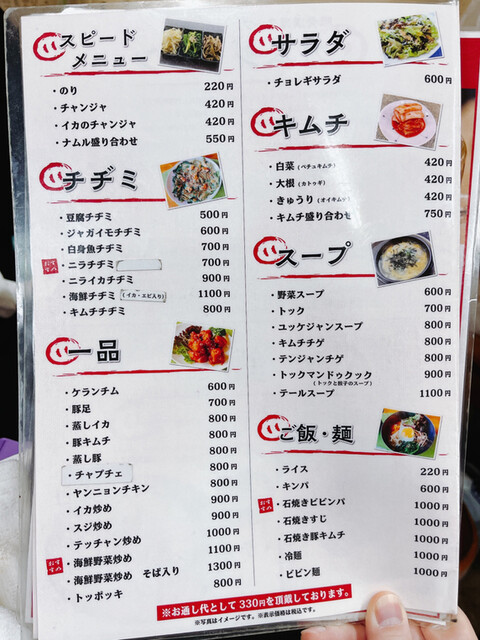 スピード
メニュー
・のり 220円
・チャンジャ 420円
・イカのチャンジャ 420円
・ナムル盛り合わせ 550円
チヂミ
・豆腐チヂミ 500円
・ジャガイモチヂミ 600円
・白身魚チヂミ 700円
おすすめ ・ニラチヂミ 700円
・ニライカチヂミ 900円
・海鮮チヂミ (イカ・エビ入り) 1100円
・キムチチヂミ 800円
一品
・ケランチム 600円
・豚足 700円
・蒸しイカ 800円
・豚キムチ 800円
・蒸し豚 800円
・チャプチェ 800円
・ヤンニョンチキン 800円
・イカ炒め 900円
・スジ炒め 900円
・テッチャン炒め 1000円
おすすめ ・海鮮野菜炒め 1100円
・海鮮野菜炒め そば入り 1300円
・トッポッキ 800円
サラダ
・チョレギサラダ 600円
キムチ
・白菜 (ペチュキムチ) 420円
・大根 (カトゥギ) 420円
・きゅうり (オイキムチ) 420円
・キムチ盛り合わせ 750円
スープ
・野菜スープ 600円
・トック 700円
・ユッケジャンスープ 800円
・キムチチゲ 800円
・テンジャンチゲ 800円
・トックマンドゥクック 900円
(トックと餃子のスープ)
・テールスープ 1100円
ご飯・麺
・ライス 220円
・キンパ 600円
おすすめ ・石焼きビビンパ 1000円
・石焼きすじ 1000円
・石焼き豚キムチ 1000円
・冷麺 1000円
・ビビン麺 1000円
※お通し代として330円を頂戴しております。
※写真はイメージです。※表示価格は税込です。